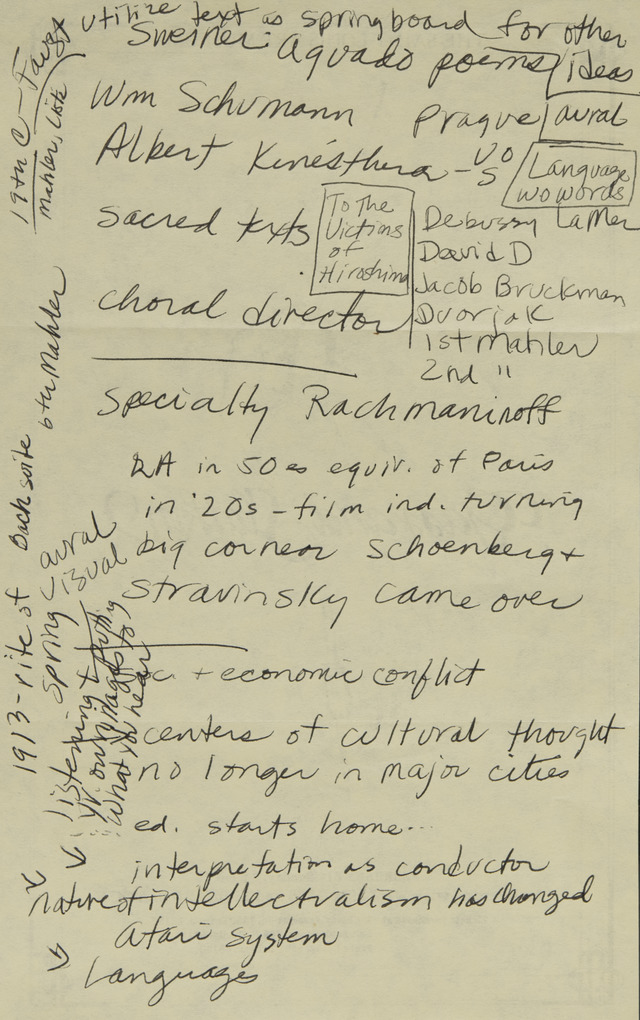 utilize text as springboard for other
Sweiner: Aguado poems / ideas
Wm Schumann Prague / aural
Albert - US
Language
wo words
sacred texts
To The
Victims
of
Hiroshima
Debussy La Mer
David D
Jacob Bruckman
Dvorjak
1st Mahler
2nd "
choral director
Specialty Rachmaninoff
LA in 50es equiv. of Paris
in '20s - film ind. turning
big corner Schoenberg +
Stravinsky came over
soc. + economic conflict
centers of cultural thought
no longer in major cities
ed. starts home...
interpretation as conductor
nature of intellectualism has changed
Atari system
Languages
19th C -
Mahler,
6th Mahler
Bach suite
1913 - rite of
Spring
aural
visual
listening + putting
yr own images to
what you hear